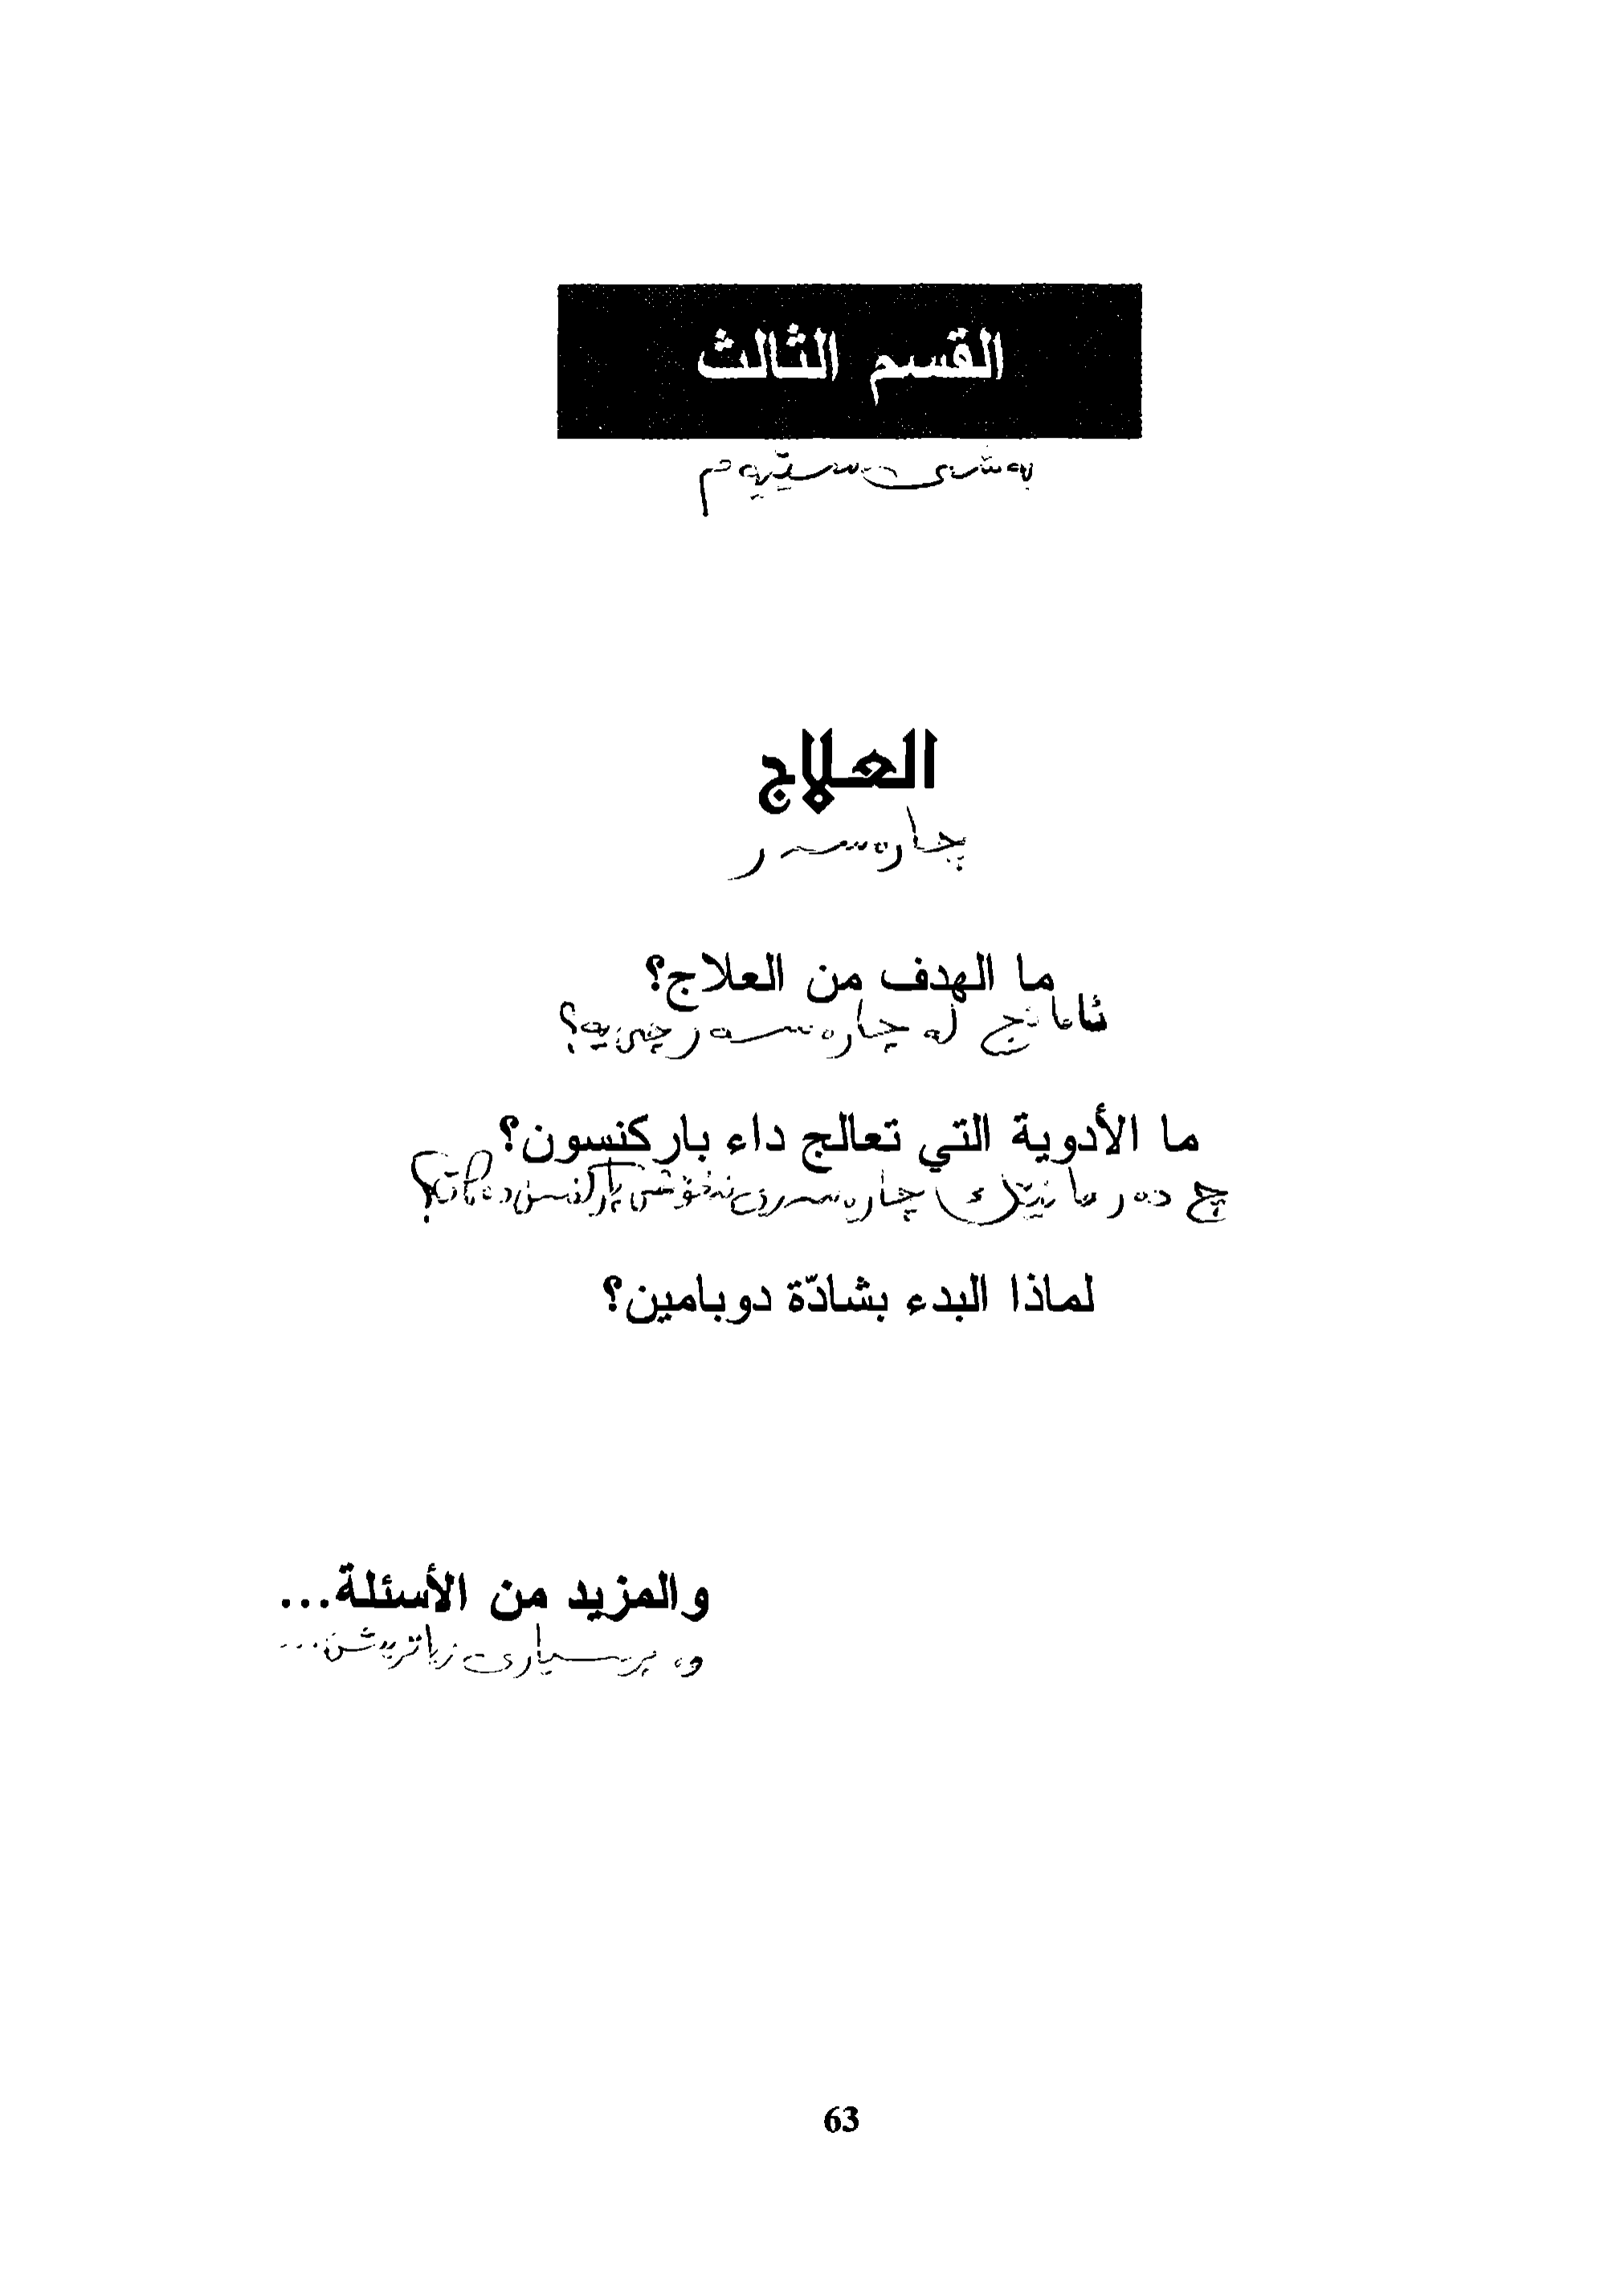 القسم الثالث
بەشی سێیەم
العلاج
چارەسەر
ما الهدف من العلاج؟
ئامانج لە چارەسەر چییە؟
ما الأدوية التي تعالج داء باركنسون؟
چ دەرمانێك چارەسەری نەخۆشی پاركنسن دەكات؟
لماذا البدء بشادّة دوبامين؟
والمزيد من الأسئلة...
وە پرسیاری زیاتریش...
63